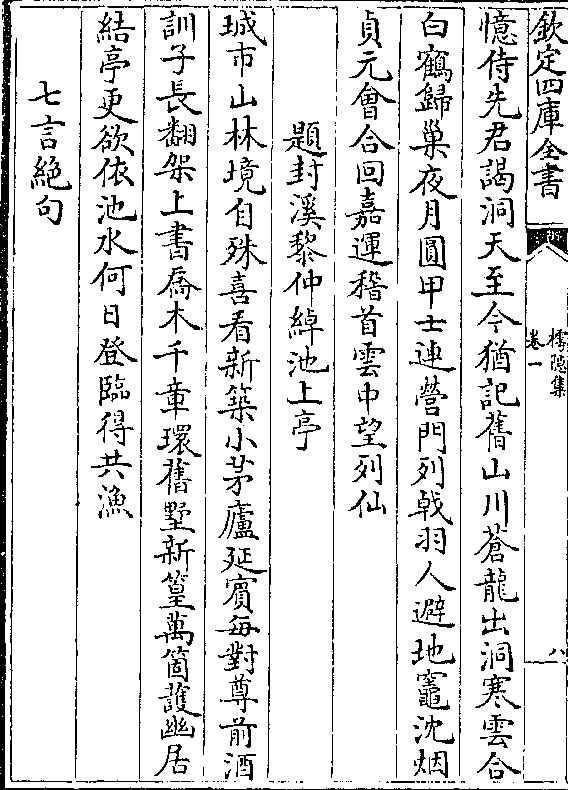 欽定四庫全書
樗隱集
卷一
八
憶侍先君謁洞天至今猶記舊山川蒼龍出洞寒雲合
白鶴歸巢夜月圓甲士連營門列戟羽人避地竈沈烟
貞元會合回嘉運稽首雲中望列仙
題封溪黎仲綽池上亭
城市山林境自殊喜看新築小茅廬延賓每對尊前酒
訓子長翻架上書喬木千章環舊墅新篁萬箇護幽居
結亭更欲依池水何日登臨得共漁
七言絕句